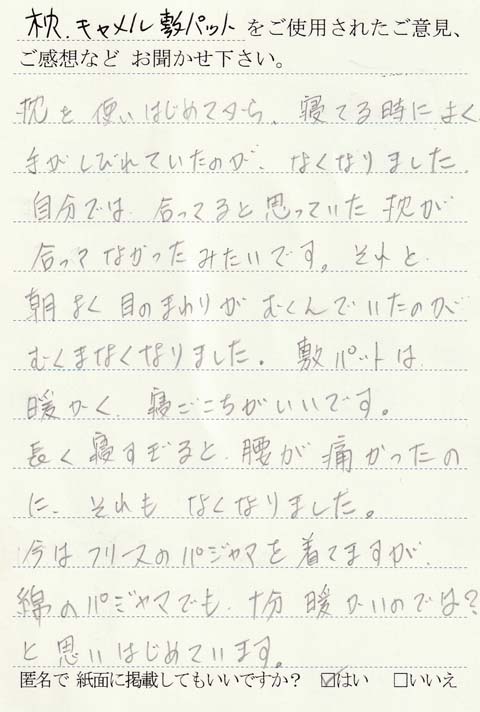 枕、キャメル敷パット をご使用されたご意見、
ご感想など お聞かせ下さい。
枕を 使いはじめてから、寝てる時によく
手がしびれていたのが、なくなりました。
自分では、合ってると思っていた 枕が
合ってなかったみたいです。それと
朝よく目のまわりが むくんでいたのが
むくまなくなりました。敷パットは、
暖かく、寝ごこちがいいです。
長く寝すぎると、腰が痛かったの
に、それも なくなりました。
今はフリースのパジャマを着てますが、
綿のパジャマでも、十分 暖かいのでは?
と思いはじめています。
匿名で 紙面に掲載してもいいですか? ☑はい □いいえ